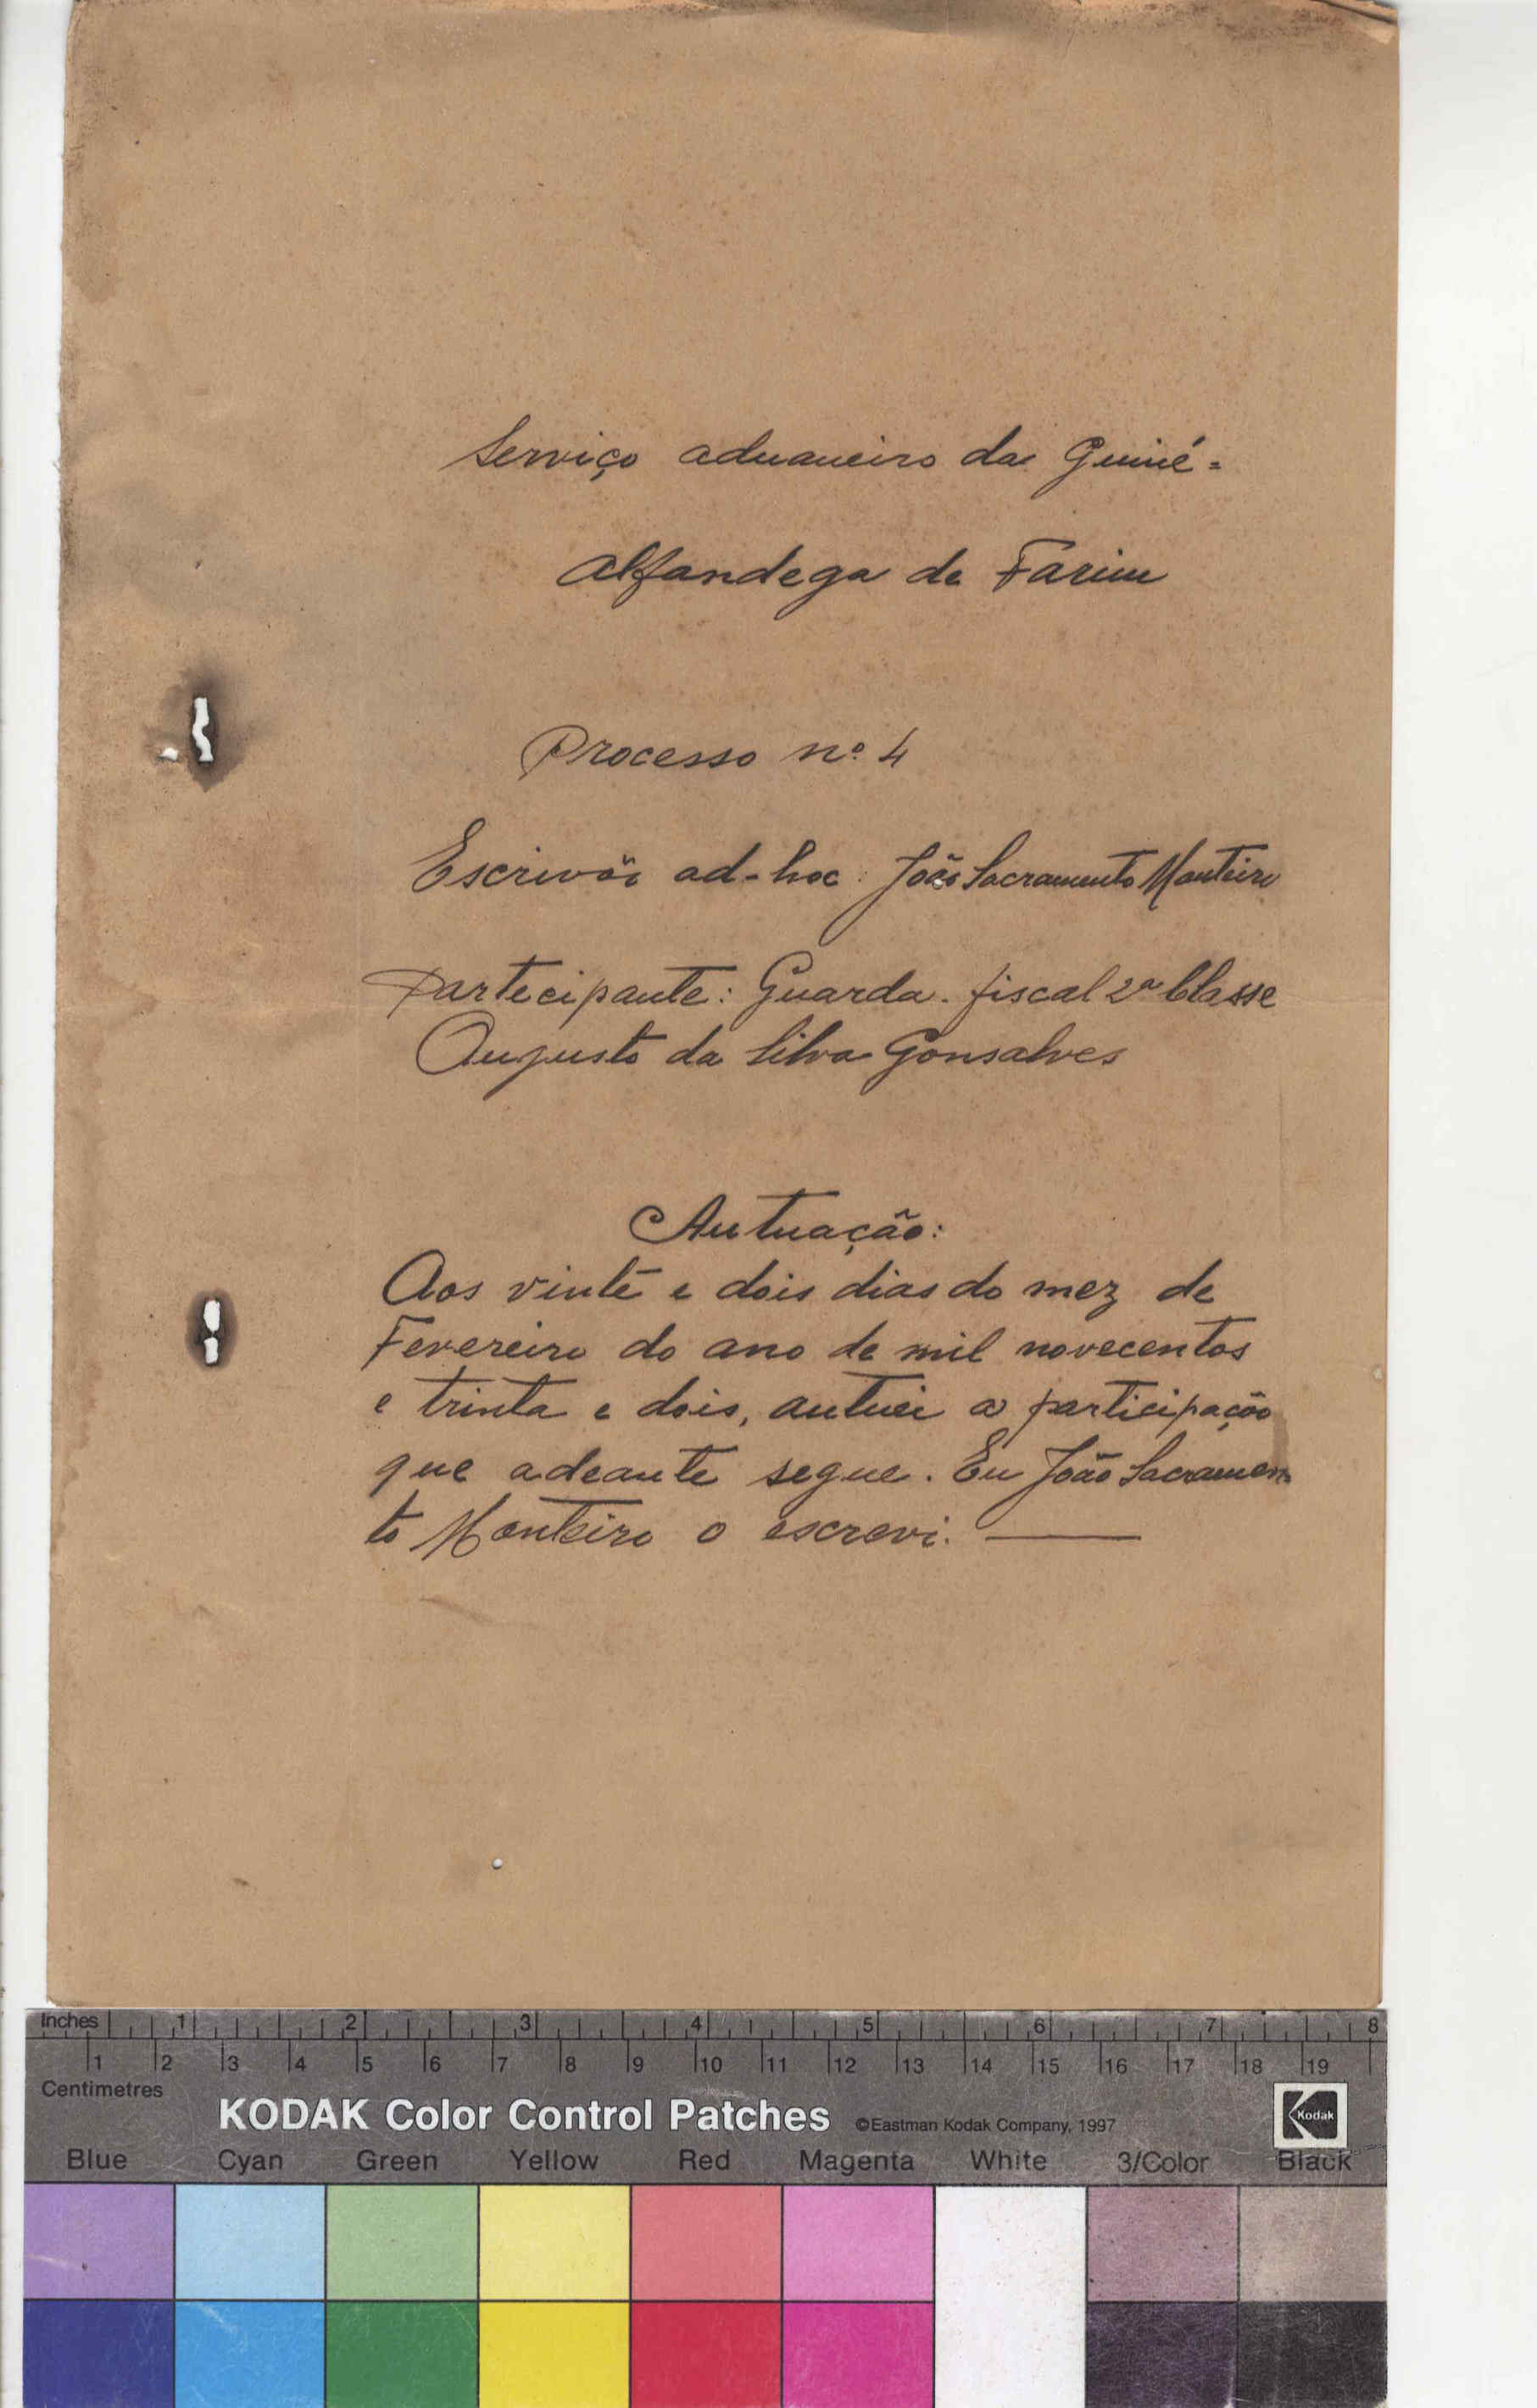 Serviço aduaneiro da Guiné-
Alfandega de Farim
Processo nº 4
Escrivão ad-hoc: João Sacramento Monteiro
Partecipante: Guarda-fiscal 2ª Classe
Augusto da Silva Gonsalves
Autuação:
Aos vinte e dois dias do mez de
Fevereiro do ano de mil novecentos
e trinta e dois, autuei a participação
que adeante segue. Eu João Sacramen-
to Monteiro o escrevi. ———
Inches 1 2 3 4 5 6 7 8
1 2 3 4 5 6 7 8 9 10 11 12 13 14 15 16 17 18 19
Centimetres
KODAK Color Control Patches ©Eastman Kodak Company, 1997 Kodak
Blue Cyan Green Yellow Red Magenta White 3/Color Black